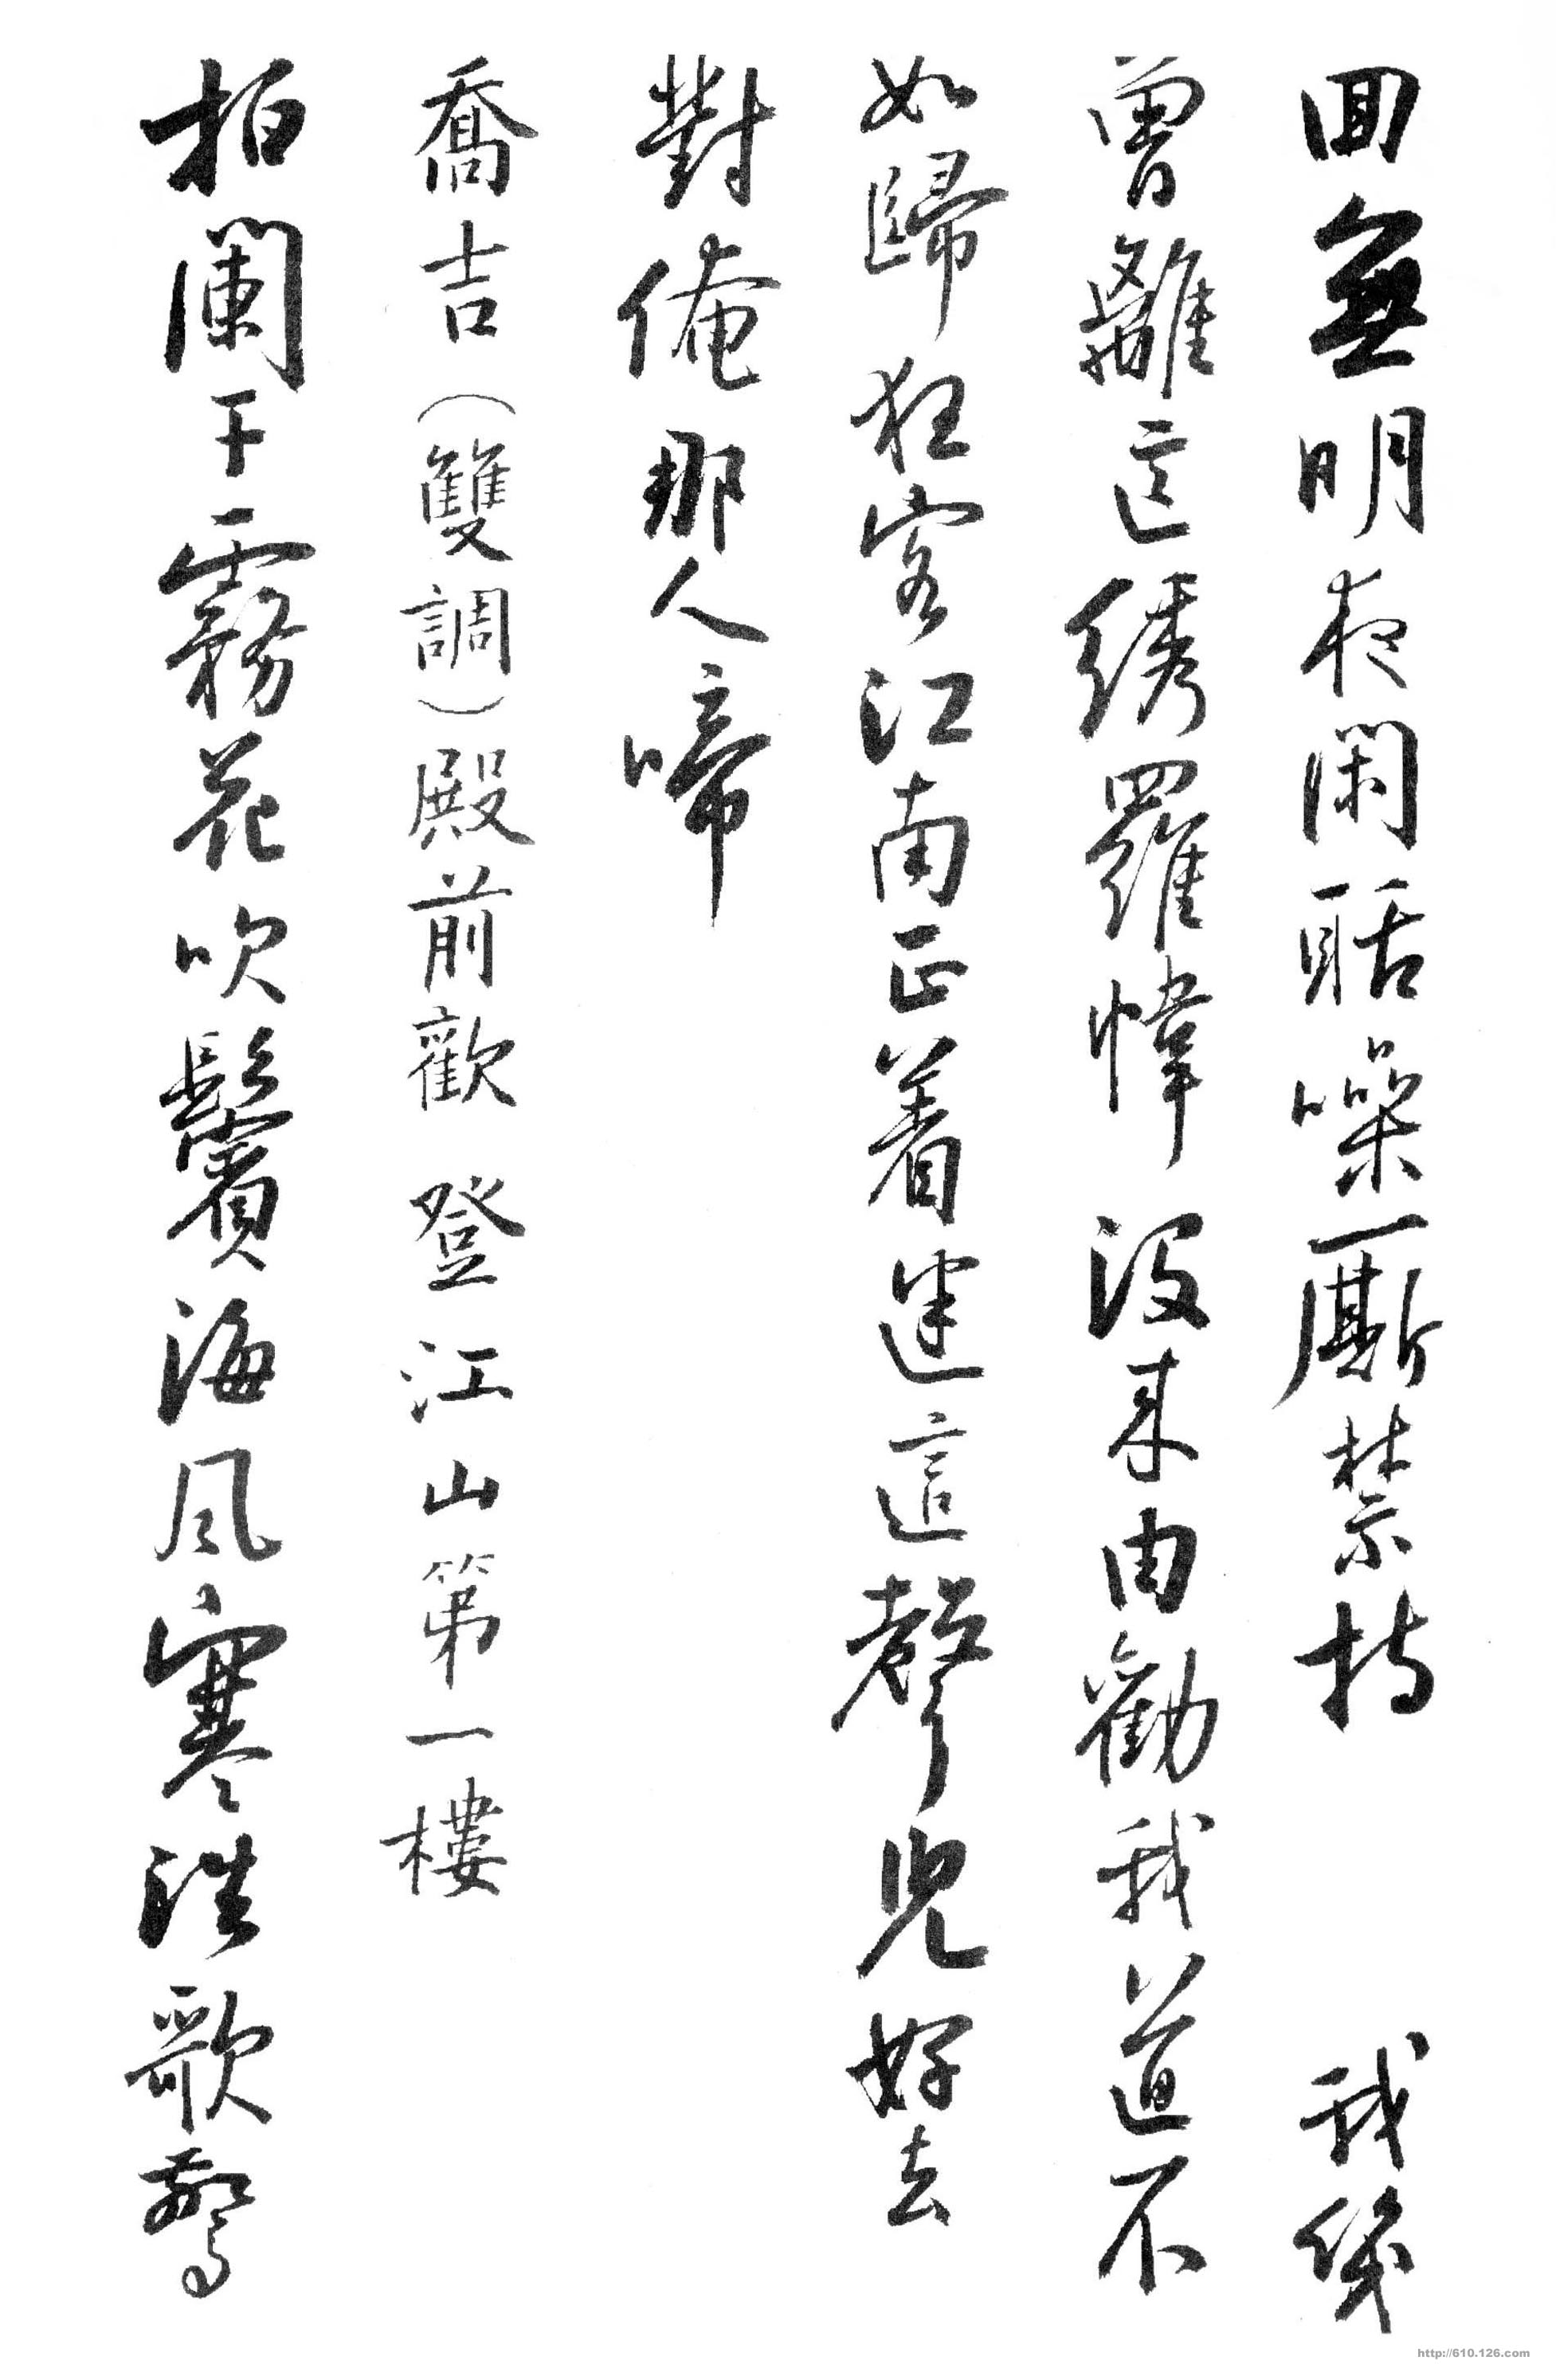 回無明夜閑聒噪廝禁持　我幾
曾離這綉羅幃没来由勸我道不
如歸狂客江南正着迷這聲兒好去
對俺那人啼
喬吉（雙調）殿前歡　登江山第一樓
拍闌干霧花吹鬢海風寒浩歌驚
http://610.126.com